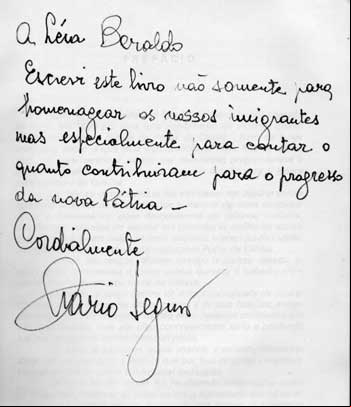 A Léia Beraldo
Escrevi este livro não somente para
homenagear os nossos imigrantes
mas especialmente para contar o
quanto contribuiram para o progresso
da nova Pátria —
Cordialmente